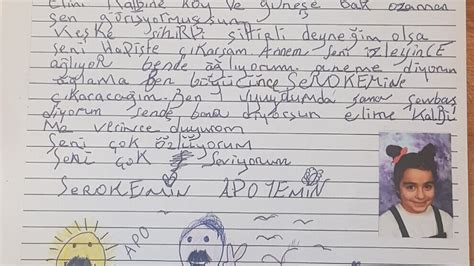 Elini Kalbine koy ve güneşe bak ozaman
sen görüşiyormuşsun
Keşke sihirli deyneğim olsa
seni Hapiste çıkarsam Annem seni izleyince
ağlıyor bende ağlıyorum Anneme diyorum
ağlama Ben büğücünce SeROKEMiNe
çıkaracağım. Ben uyuydumda sana şewbaş
diyorum sende bana diyorsun elime Kalbi
Me verince duyurom
Seni çok özlüyorum
Seni çok Seviyorum
SeROKEMiN APOYEMiN
APO